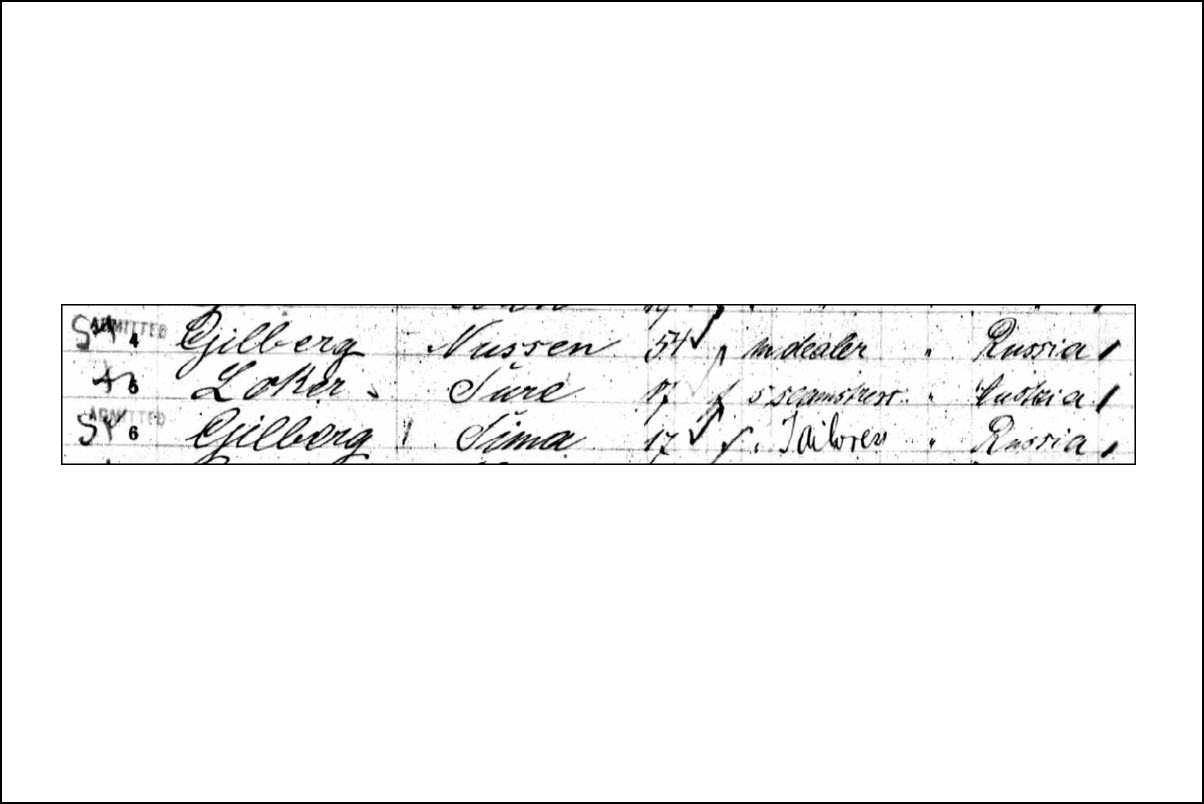 ADMITTED 4 Gilberg Nussen 54 m dealer " Russia
5 Loker Sure 17 f s seamstress " Austria
ADMITTED SP 6 Gilberg Sima 17 f Tailoress " Russia